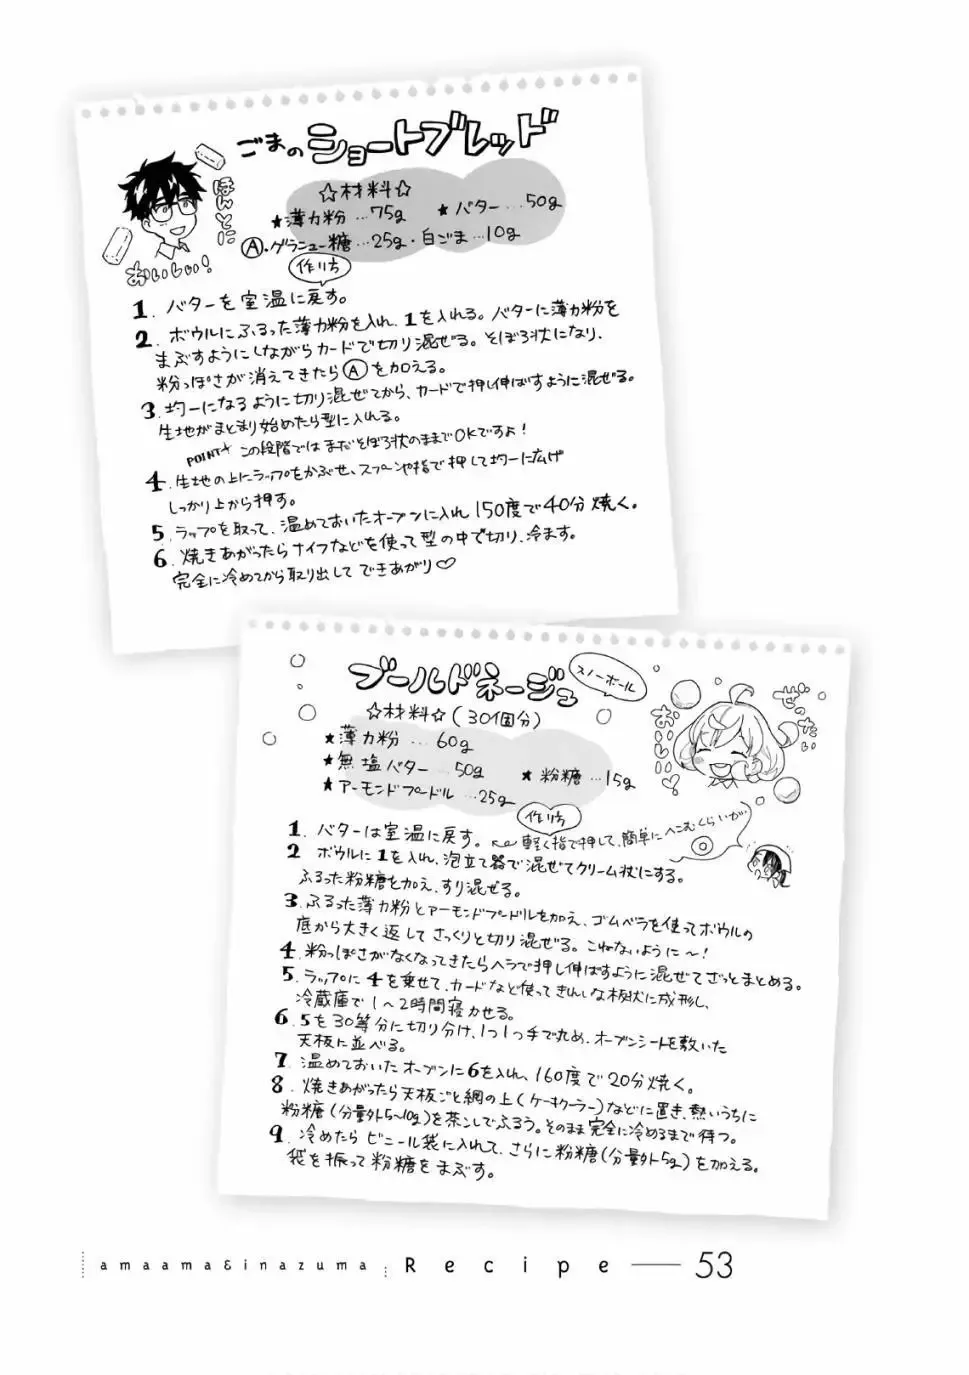 ごまの ショートブレッド
ほんとに
おいしい！
☆材料☆
★薄力粉…75g ★バター…50g
Ⓐ・グラニュー糖…25g・白ごま…10g
作り方
1. バターを室温に戻す。
2. ボウルにふるった薄力粉を入れ、1を入れる。バターに薄力粉を
まぶすようにしながらカードで切り混ぜる。そぼろ状になり、
粉っぽさが消えてきたらⒶを加える。
3. 均一になるように切り混ぜてから、カードで押し伸ばすように混ぜる。
生地がまとまり始めたら型に入れる。
POINT★ この段階ではまだそぼろ状のままでOKですよ！
4. 生地の上にラップをかぶせ、スプーンや指で押して均一に広げ
しっかり上から押す。
5. ラップを取って、温めておいたオーブンに入れ150度で40分焼く。
6. 焼きあがったらナイフなどを使って型の中で切り、冷ます。
完全に冷めてから取り出してできあがり♡
ブールドネージュ
スノーボール
ぜったい
おいしい♡
☆材料☆(30個分)
★薄力粉…60g
★無塩バター…50g ★粉糖…15g
★アーモンドプードル…25g
作り方
1. バターは室温に戻す。 軽く指で押して、簡単にへこむくらいが…
◎
2 ボウルに1を入れ、泡立て器で混ぜてクリーム状にする。
ふるった粉糖を加え、すり混ぜる。
3. ふるった薄力粉とアーモンドプードルを加え、ゴムベラを使ってボウルの
底から大きく返してさっくりと切り混ぜる。こねないように〜！
4. 粉っぽさがなくなってきたらヘラで押し伸ばすように混ぜてざっとまとめる。
5. ラップに4を乗せて、カードなど使ってきれいな板状に成形し、
冷蔵庫で1〜2時間寝かせる。
6. 5を30等分に切り分け、1つ1つ手で丸め、オーブンシートを敷いた
天板に並べる。
7. 温めておいたオーブンに6を入れ、160度で20分焼く。
8. 焼きあがったら天板ごと網の上(ケーキクーラー)などに置き、熱いうちに
粉糖(分量外5〜10g)を茶こしでふるう。そのまま完全に冷めるまで待つ。
9. 冷めたらビニール袋に入れて、さらに粉糖(分量外5g)を加える。
袋を振って粉糖をまぶす。
amaama&inazuma Recipe — 53